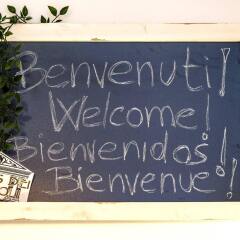 Benvenuti!
Welcome!
Bienvenidos!
Bienvenue!